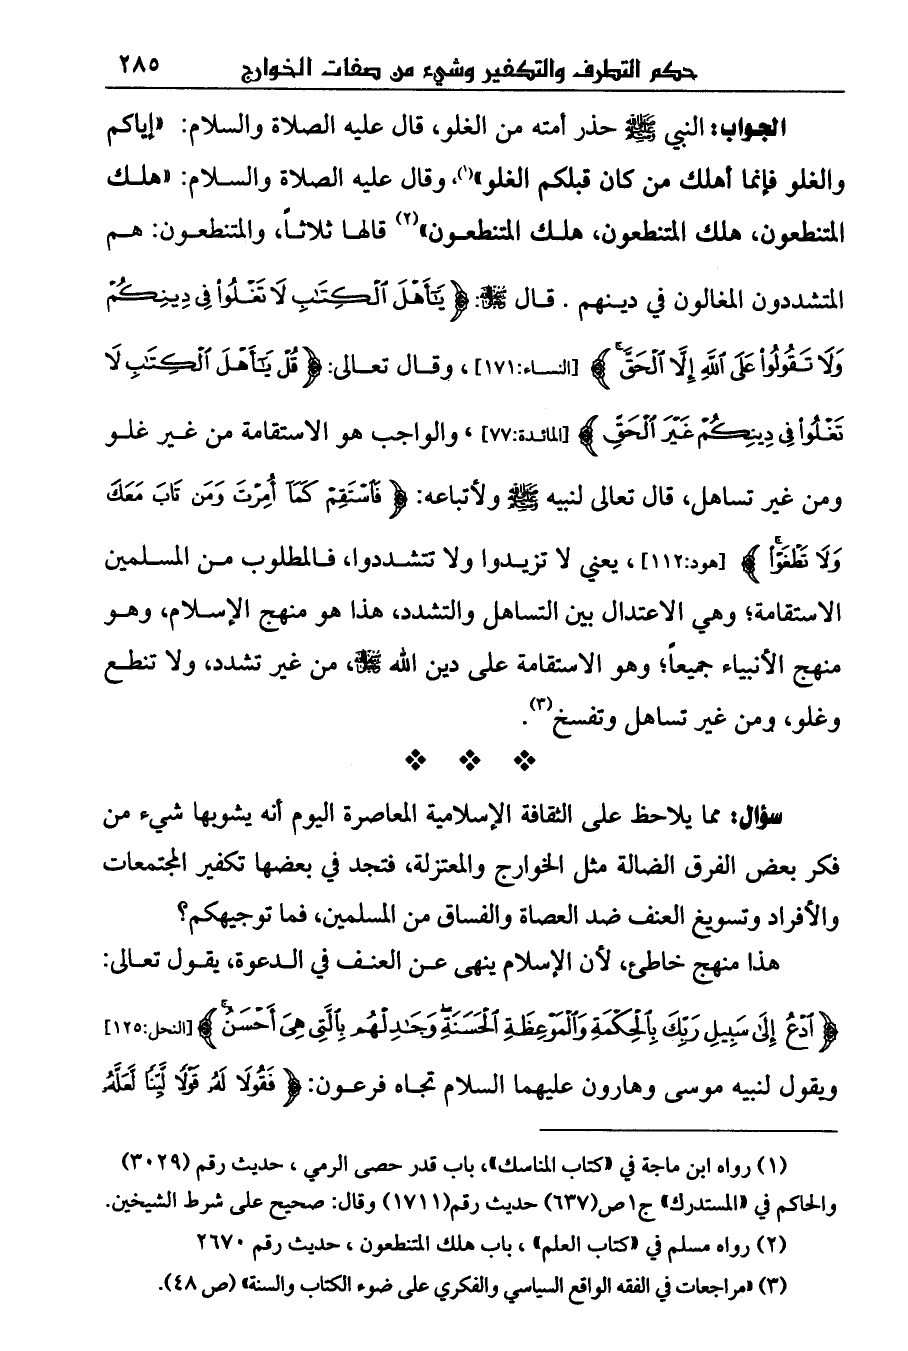 حكم التطرف والتكفير وشيء من صفات الخوارج ٢٨٥
الجواب: النبي ﷺ حذر أمته من الغلو، قال عليه الصلاة والسلام: «إياكم
والغلو فإنما أهلك من كان قبلكم الغلو»(١)، وقال عليه الصلاة والسـلام: «هلـك
المتنطعون، هلك المتنطعون، هلـك المتنطعـون»(٢) قالهـا ثلاثـاً، والمتنطعـون: هـم
المتشددون المغالون في دينهم . قـال ﷻ: ﴿ يَٰٓأَهْلَ ٱلْكِتَٰبِ لَا تَغْلُوا۟ فِى دِينِكُمْ
وَلَا تَقُولُوا۟ عَلَى ٱللَّهِ إِلَّا ٱلْحَقَّ ۚ ﴾ [النساء:١٧١] ، وقـال تعـالى: ﴿ قُلْ يَٰٓأَهْلَ ٱلْكِتَٰبِ لَا
تَغْلُوا۟ فِى دِينِكُمْ غَيْرَ ٱلْحَقِّ ﴾ [المائدة:٧٧] ، والواجب هو الاستقامة من غـير غلـو
ومن غير تساهل، قال تعالى لنبيه ﷺ ولأتباعه: ﴿ فَٱسْتَقِمْ كَمَآ أُمِرْتَ وَمَن تَابَ مَعَكَ
وَلَا تَطْغَوْا۟ ۚ ﴾ [هود:١١٢] ، يعني لا تزيـدوا ولا تتشـددوا، فـالمطلوب مـن المسـلمين
الاستقامة؛ وهي الاعتدال بين التساهل والتشدد، هذا هو منهج الإسـلام، وهـو
منهج الأنبياء جميعاً؛ وهو الاستقامة على دين الله ﷻ، من غير تشدد، ولا تنطـع
وغلو، ومن غير تساهل وتفسخ(٣).
❖ ❖ ❖
سؤال: مما يلاحظ على الثقافة الإسلامية المعاصرة اليوم أنه يشوبها شيء من
فكر بعض الفرق الضالة مثل الخوارج والمعتزلة، فتجد في بعضها تكفير المجتمعات
والأفراد وتسويغ العنف ضد العصاة والفساق من المسلمين، فما توجيهكم؟
هذا منهج خاطئ، لأن الإسلام ينهى عـن العنـف في الـدعوة، يقـول تعـالى:
﴿ ٱدْعُ إِلَىٰ سَبِيلِ رَبِّكَ بِٱلْحِكْمَةِ وَٱلْمَوْعِظَةِ ٱلْحَسَنَةِ ۖ وَجَٰدِلْهُم بِٱلَّتِى هِىَ أَحْسَنُ ۚ ﴾ [النحل:١٢٥]
ويقول لنبيه موسى وهارون عليهما السلام تجاه فرعـون: ﴿ فَقُولَا لَهُۥ قَوْلًا لَّيِّنًا لَّعَلَّهُۥ
(١) رواه ابن ماجة في «كتاب المناسك»، باب قدر حصى الرمي ، حديث رقم (٣٠٢٩)
والحاكم في «المستدرك» ج١ص(٦٣٧) حديث رقم(١٧١١) وقال: صحيح على شرط الشيخين.
(٢) رواه مسلم في «كتاب العلم» ، باب هلك المتنطعون ، حديث رقم ٢٦٧٠
(٣) «مراجعات في الفقه الواقع السياسي والفكري على ضوء الكتاب والسنة» (ص ٤٨).